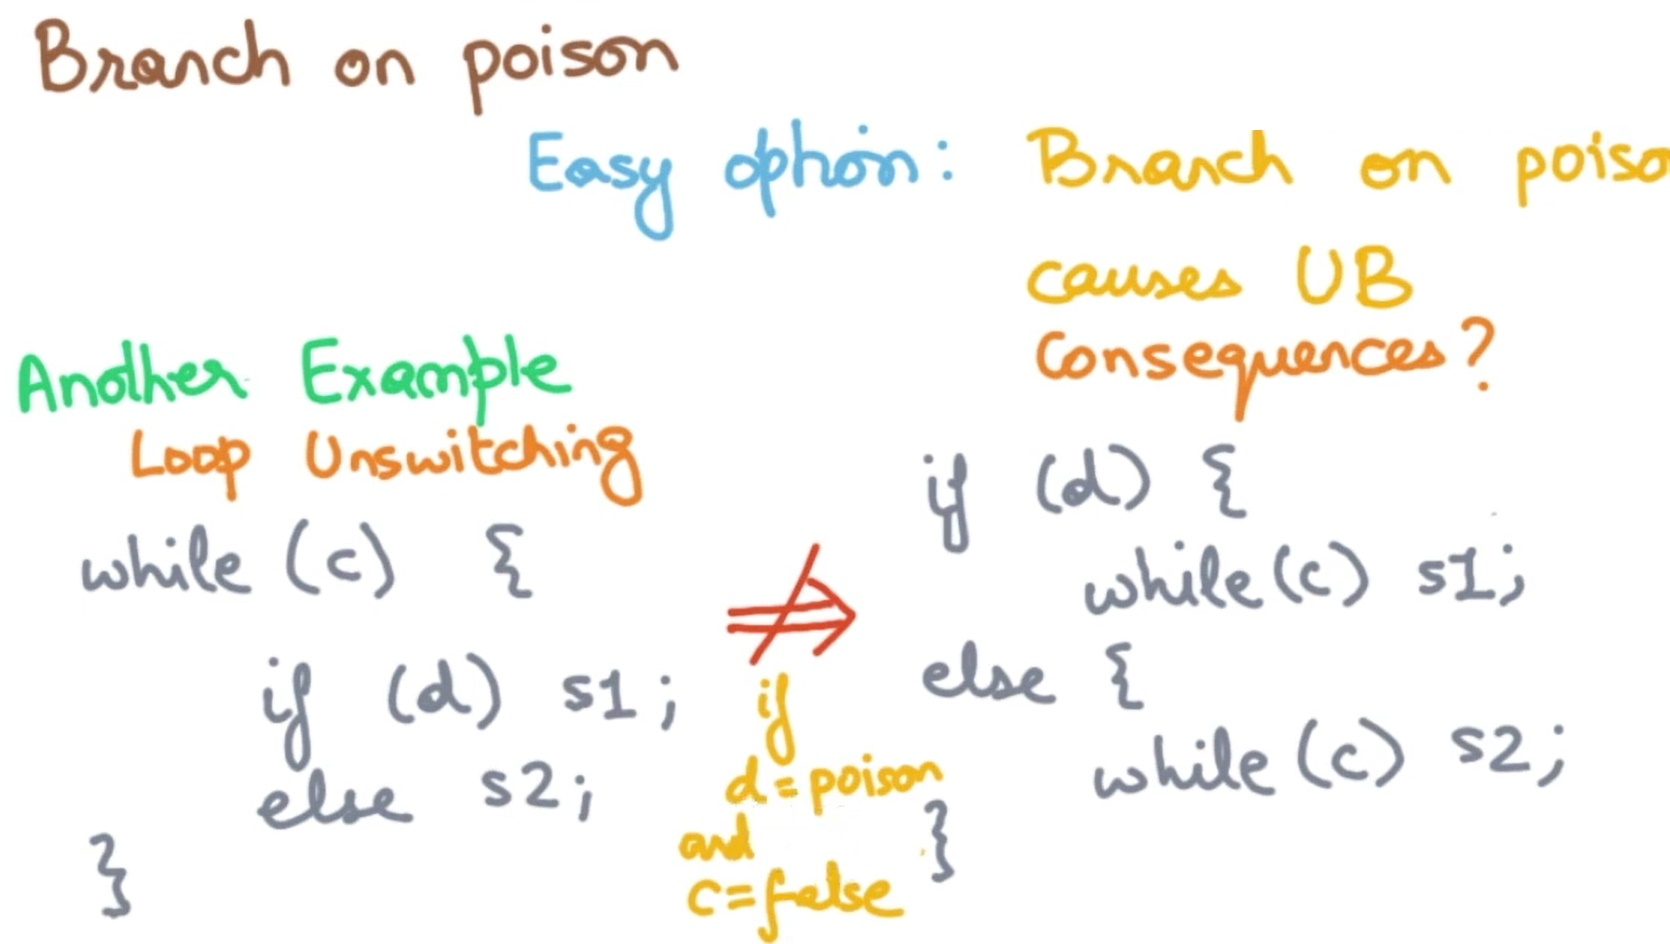 Branch on poison
Easy option: Branch on poiso
causes UB
Consequences?
Another Example
Loop Unswitching
while (c) {
if (d) s1;
else s2;
}
⇏
if
d = poison
and
c = false
if (d) {
while (c) s1;
else {
while (c) s2;
}